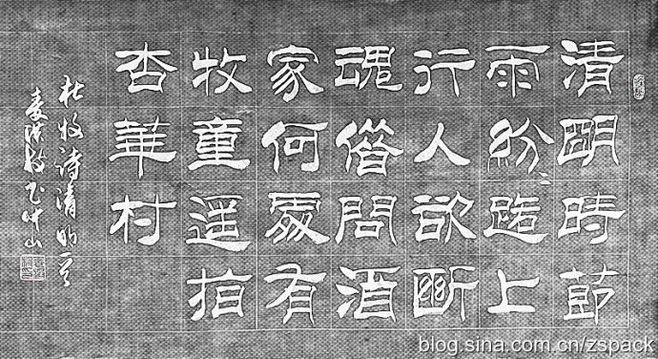 清明時節
雨紛〻路上
行人欲斷
魂借問酒
家何處有
牧童遥指
杏華村
杜牧詩清明
书中山
blog.sina.com.cn/zspack